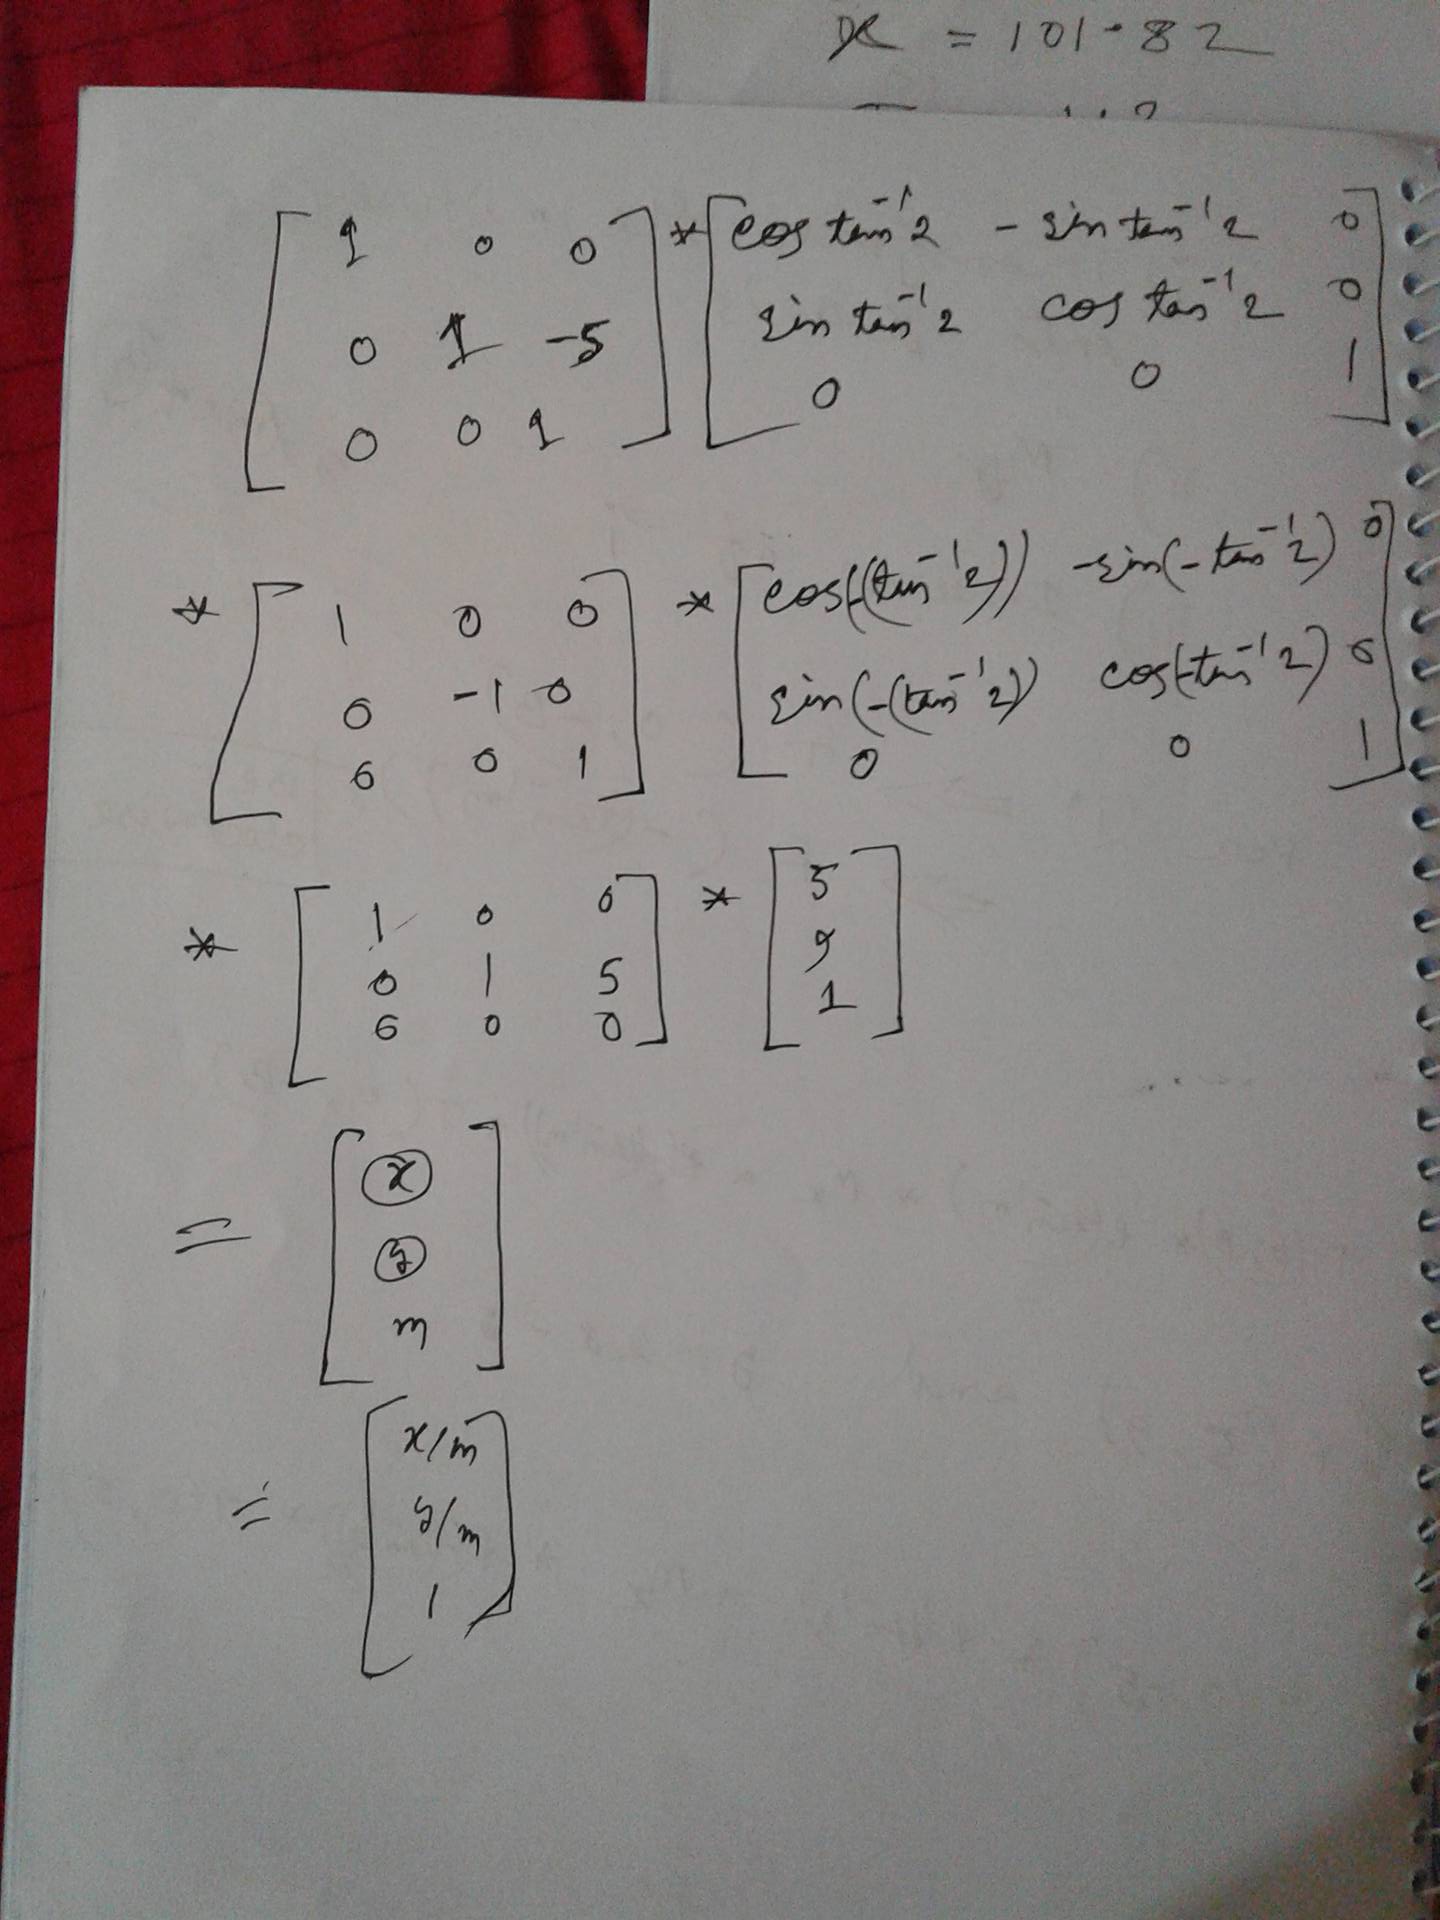 x = 101.82
[ 1 0 0 ] * [ cos tan⁻¹2 - sin tan⁻¹2 0 ]
[ 0 1 -5 ] [ sin tan⁻¹2 cos tan⁻¹2 0 ]
[ 0 0 1 ] [ 0 0 1 ]
* [ 1 0 0 ] * [ cos(-(tan⁻¹2)) -sin(-tan⁻¹2) 0 ]
[ 0 -1 0 ] [ sin(-(tan⁻¹2)) cos(-tan⁻¹2) 0 ]
[ 0 0 1 ] [ 0 0 1 ]
* [ 1 0 0 ] * [ 5 ]
[ 0 1 5 ] [ 9 ]
[ 0 0 0 ] [ 1 ]
= [ x ]
[ y ]
[ m ]
= [ x/m ]
[ y/m ]
[ 1 ]